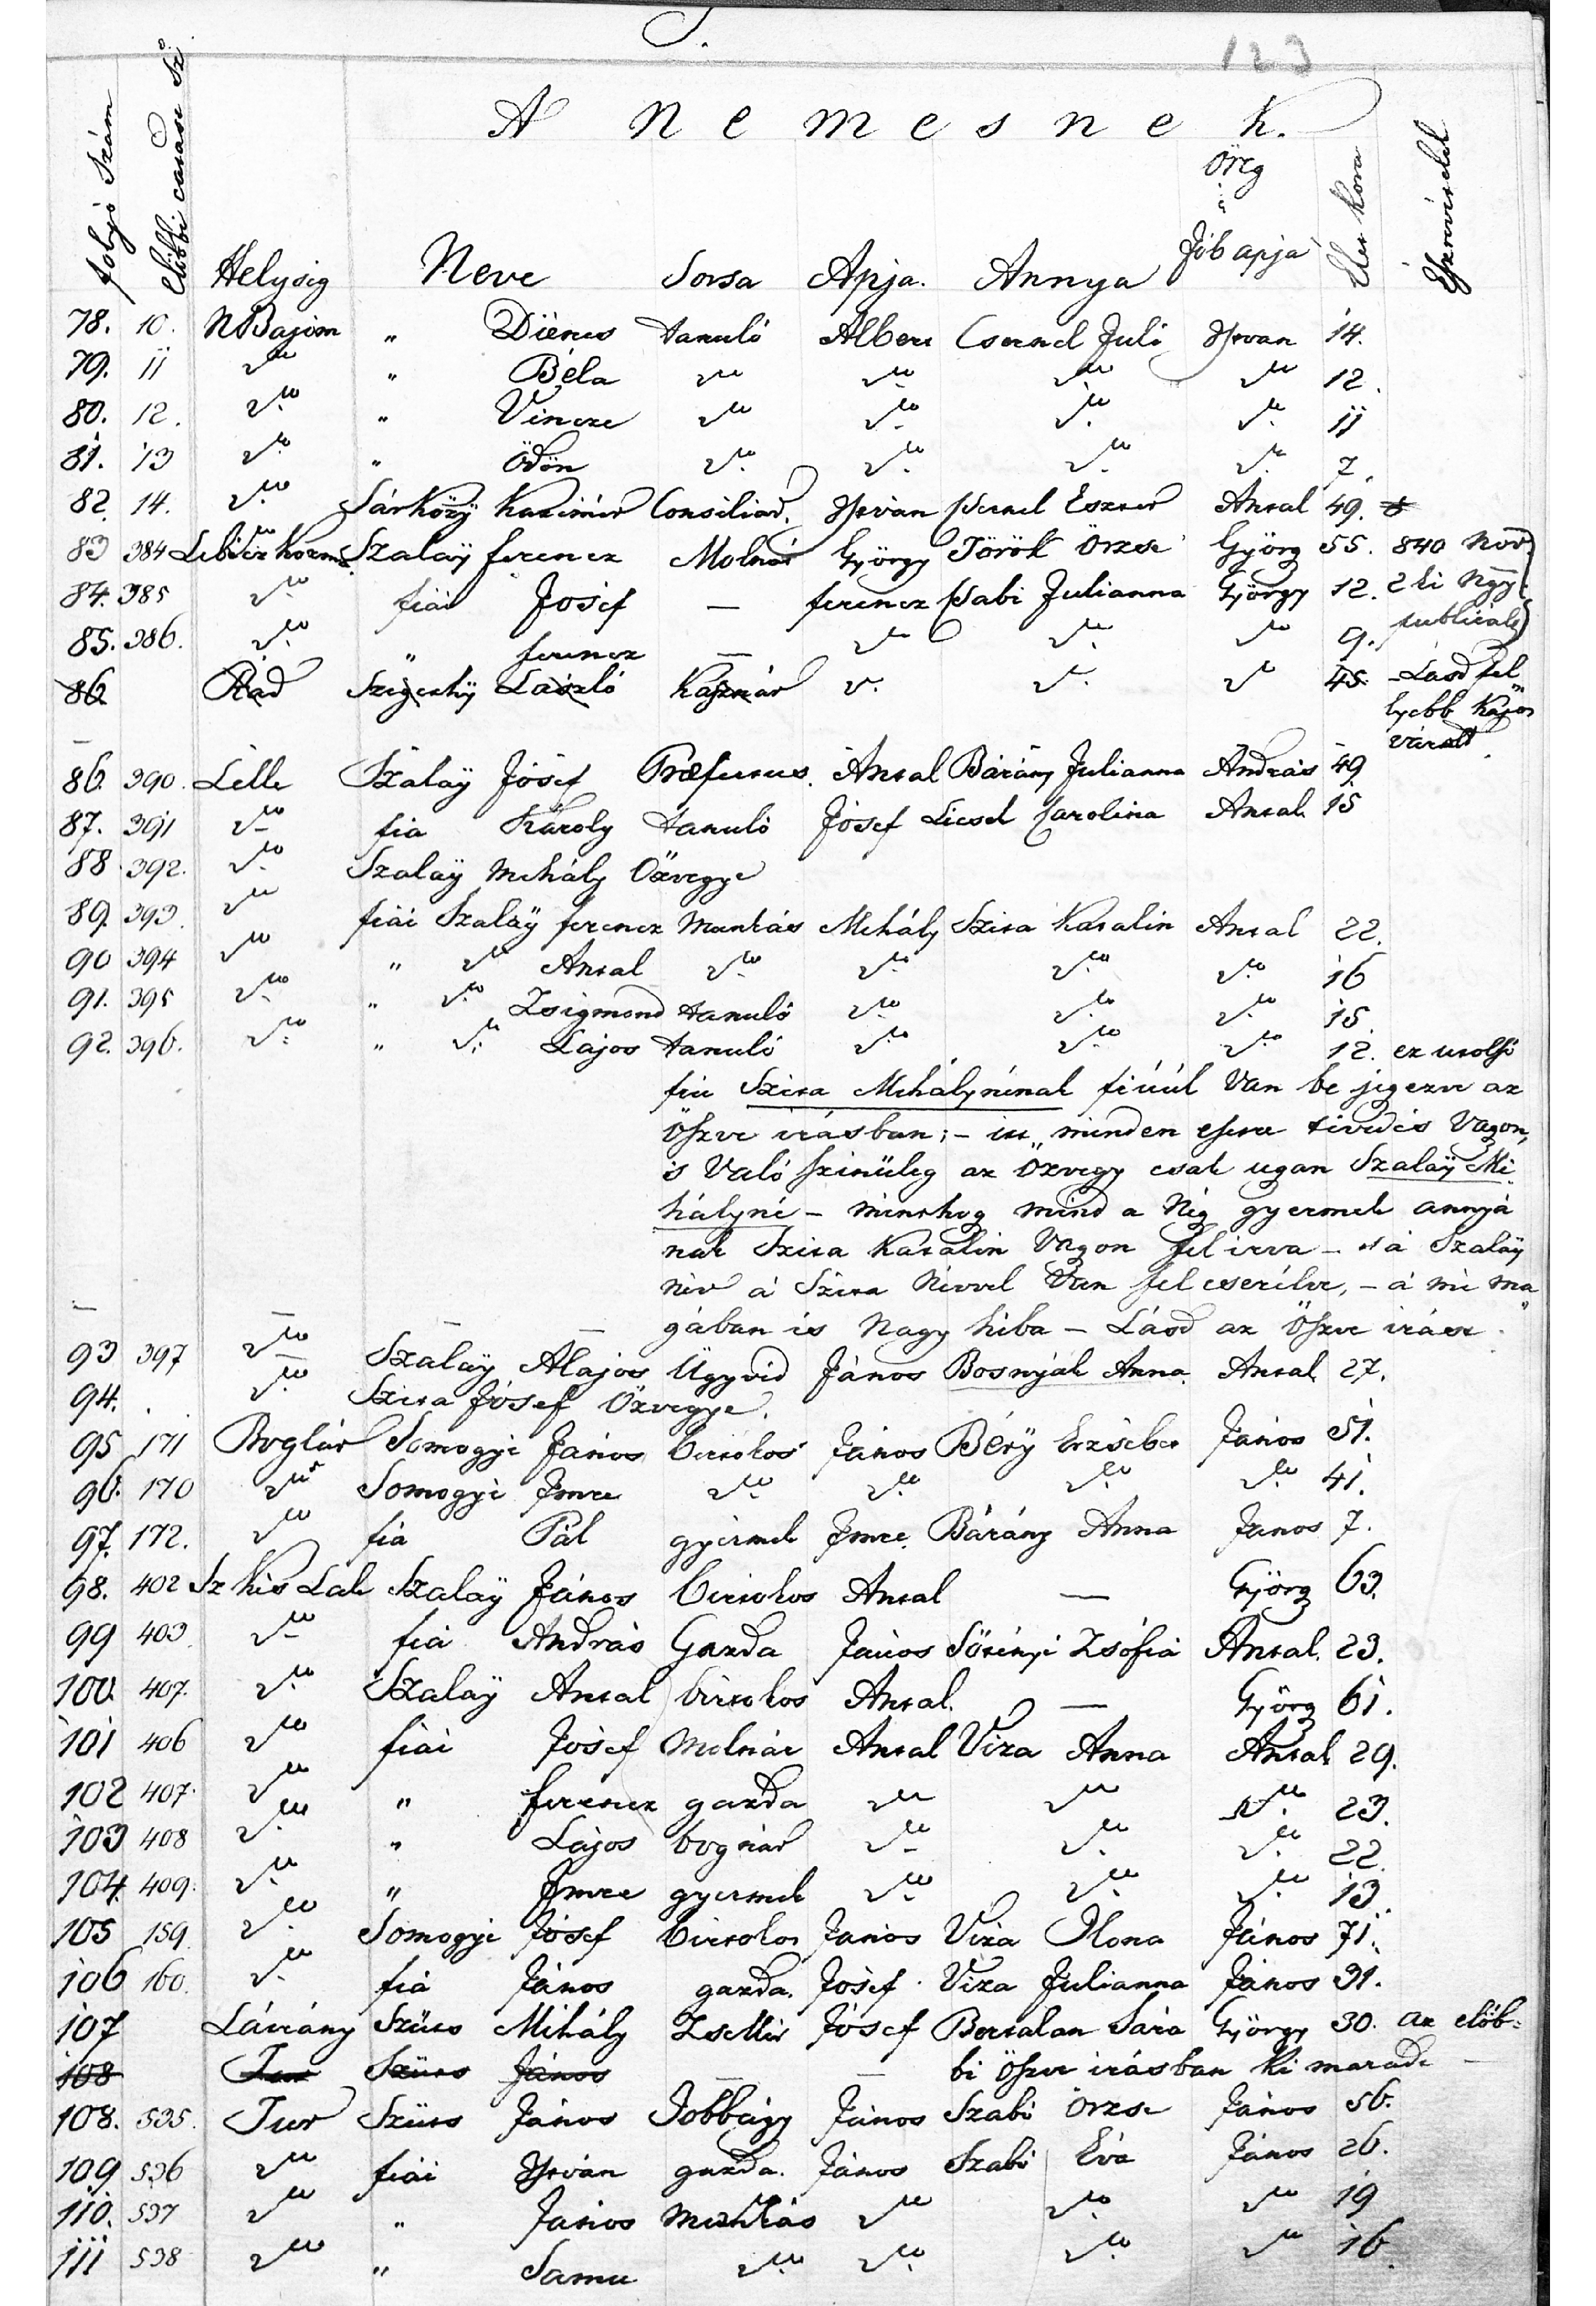 S.
123
A Nemesnek.
folyó Szám
Helység Neve Sorsa Apja. Annya Öreg Jób apja Élet Kora Észrevételek
78. 10. NBajom " Diénes tanuló Albert Csernel Juli István 14.
79. 11 " Béla 12.
80. 12. " Vincze 11
81. 13 " Ödön 7.
82. 14. Sárközy Kazimir Consiliar. István Csernel Eszter Antal 49.
83 384 Szalaÿ ferencz Molnár György Török Örzse Györg 55. 840 Nov
84. 385 fiai Josef — ferencz Csabi Julianna György 12. 2 ki Ngy
85. 386. " ferencz — 9. publicált
86 Rád Szigethÿ László Kasznár 45. Lásd fel
lyebb Kapos
várat
86. 390. Lelle Szalaÿ Jósef Præfectus. Antal Bárány Julianna András 49.
87. 391 fia Károly tanuló Jósef Carolina Antal 15
88 392. Szalaÿ Mihály Özvegye
89. 393. fiai Szalaÿ ferencz Munkás Mihály Szita Katalin Antal 22.
90 394 " Antal 16
91. 395 " Zsigmond tanuló 15.
92. 396. " Lajos tanuló 12. ez utolsó
fiu Szita Mihálynénak fiúúl Van be jegezve az
öszve irásban; – itt minden esetre tévedés Vagon,
is Való szinüleg az Özvegy csak ugan Szalaÿ Mi
hályné – minthog mind a Nég gyermek annyá
nak Szita Katalin Vagon fel irva – s á Szalaÿ
név á Szita Névvel Van fel cserélve, – á mi ma
gában is Nagy hiba – Lásd az Öszve irást.
93 397 Szalaÿ Alajos Ügyvéd János Bosnyák Anna Antal 27.
94. Szita Jósef Özvegye.
95 171 Boglár Somogyi János birtokos János Béry Erzsébet János 51.
96. 170 Somogyi Imre 41.
97. 172. fia Pál gyermek Imre. Bárány Anna János 7.
98. 402 Sz kis Lak Szalaÿ János birtokos Antal — Györg 63.
99 403 fia András Gazda János Sörényi Zsófia Antal. 23.
100. 407. Szalaÿ Antal birtokos Antal. — Györg 61.
101 406 fiai Jósef Molnár Antal Viza Anna Antal 29.
102 407. " ferencz gazda 23.
103 408 " Lajos bognár 22.
104. 409. " Imre gyermek 13.
105 159 Somogyi Jósef birtokos János Viza Ilona János 71.
106 160. fia János gazda. Jósef Viza Julianna János 31.
107 Látrány Szücs Mihály Zsellér Jósef Bertalan Sára György 30. az elöb-
108 Tur Szücs János bi öszve irásban ki maradt —
108. 535. Tur Szücs János Jobbágy János Szabó Örzse János 56.
109 536 fiai István gazda. János Szabó Éva János 26.
110. 537 " János Munkás 19
111 538 " Samu 16.